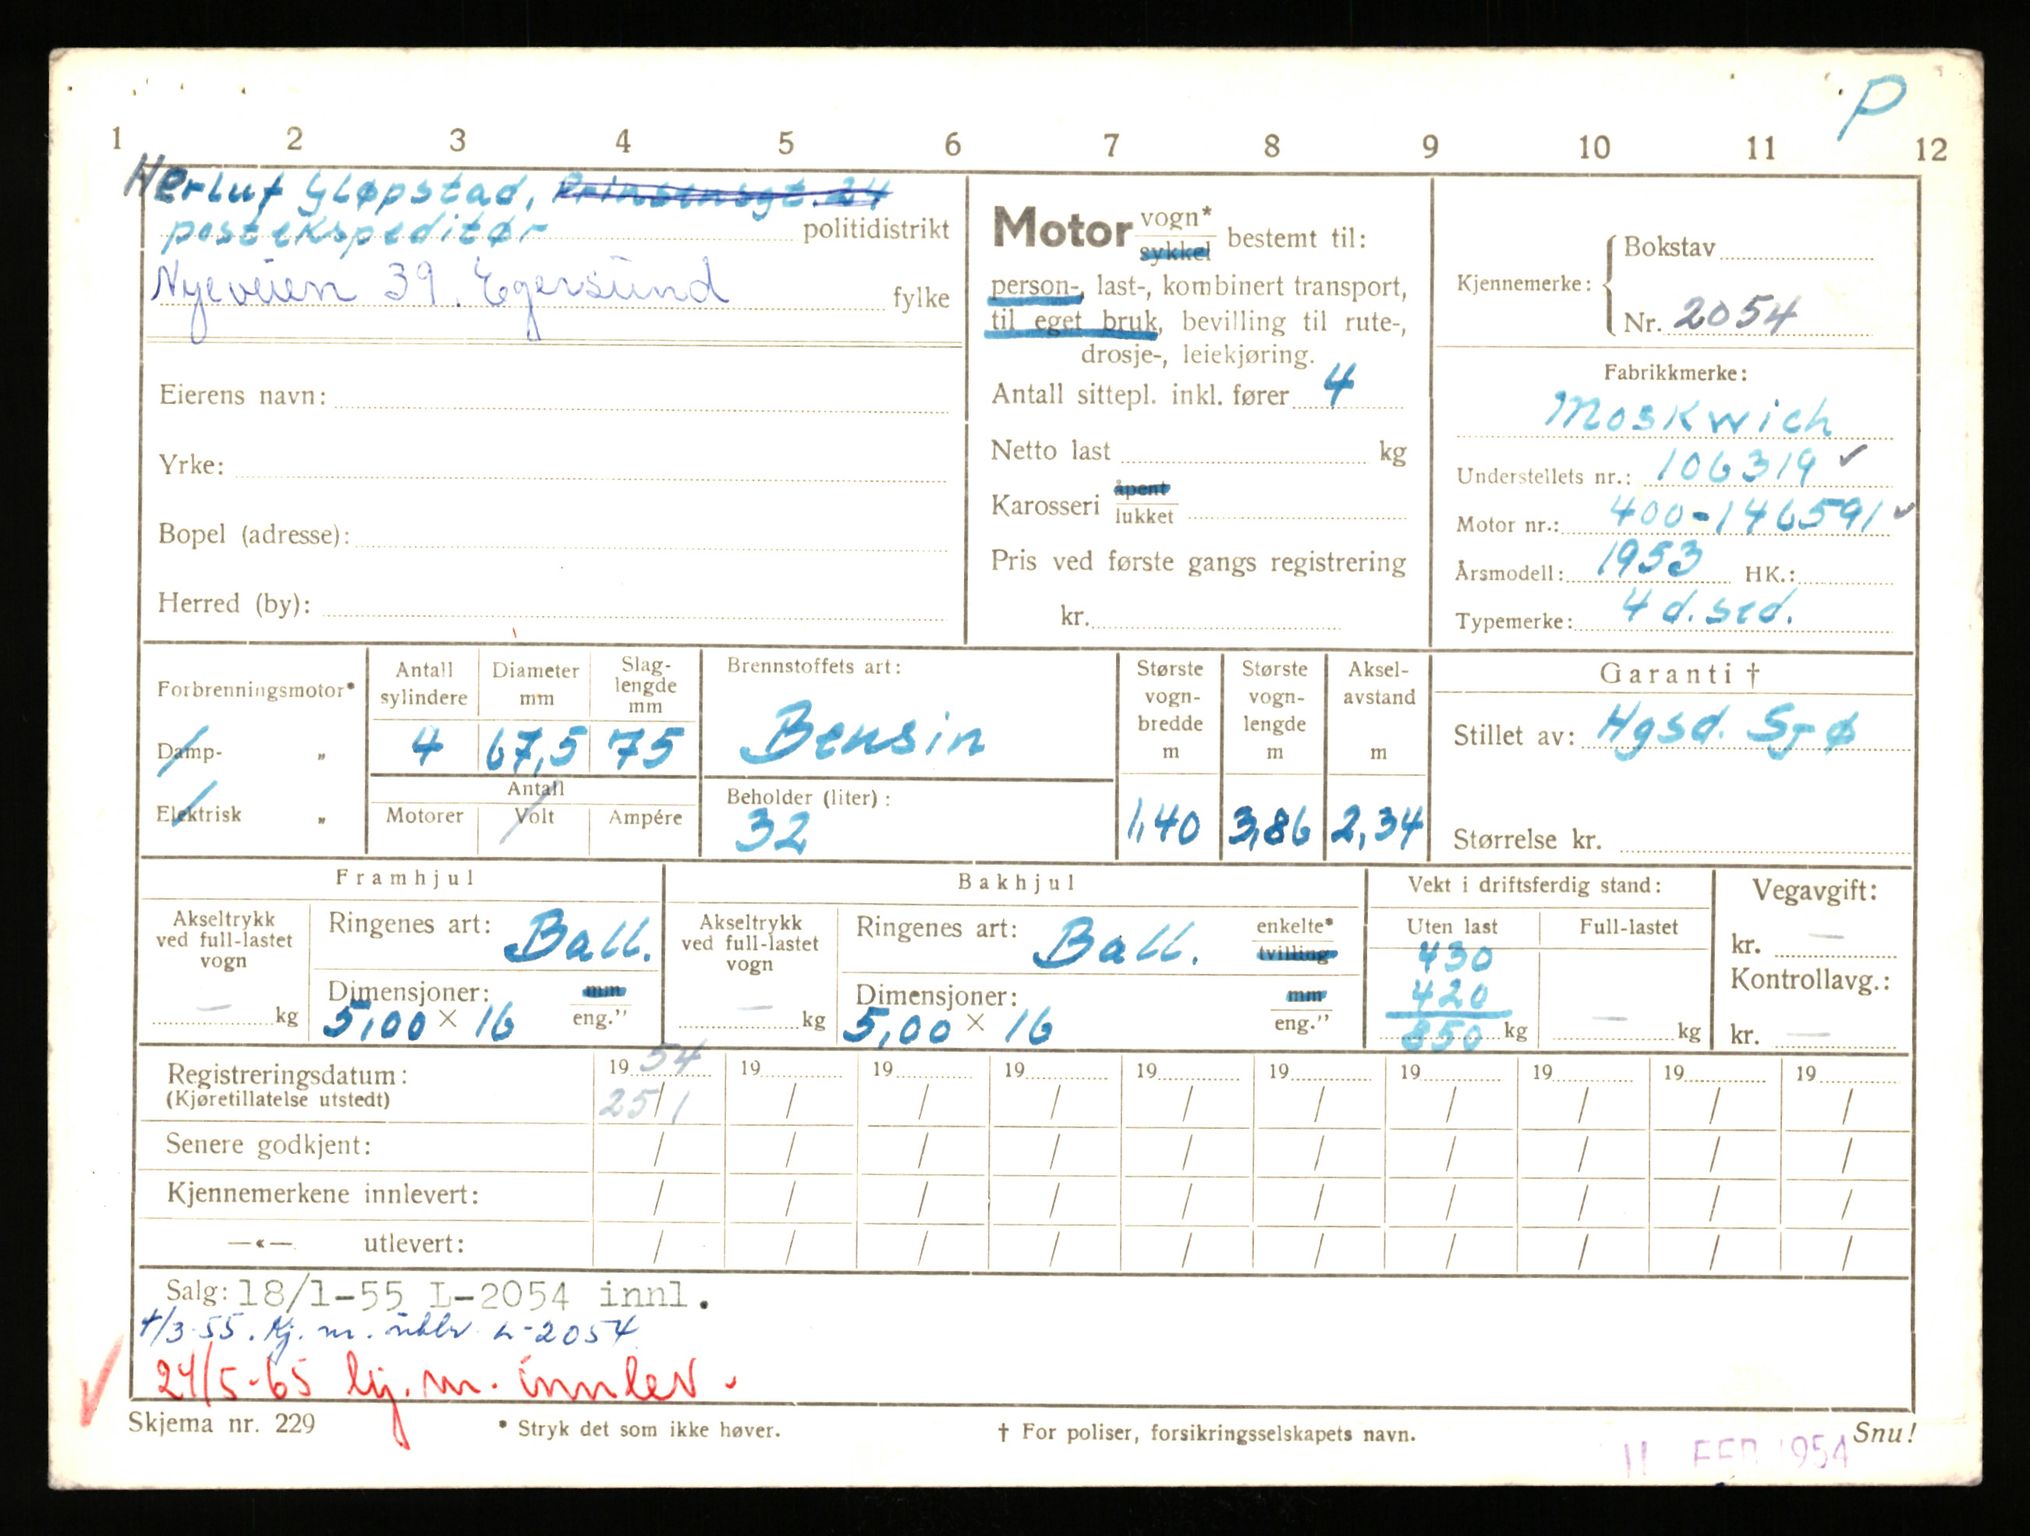 P
1 2 3 4 5 6 7 8 9 10 11 12
Herluf Gløpstad, Prinsensgt. 24
postekspeditør politidistrikt
Nyeveien 39. Egersund fylke
Eierens navn:
Yrke:
Bopel (adresse):
Herred (by):
Motor vogn* sykkel bestemt til:
person-, last-, kombinert transport,
til eget bruk, bevilling til rute-,
drosje-, leiekjøring.
Antall sittepl. inkl. fører 4
Netto last kg
Karosseri åpent lukket
Pris ved første gangs registrering
kr.
Kjennemerke: Bokstav
Nr. 2054
Fabrikkmerke:
Moskwich
Understellets nr.: 106319 ✓
Motor nr.: 400-146591 ✓
Årsmodell: 1953 HK.:
Typemerke: 4 d. sed.
Forbrenningsmotor*
Damp- „
Elektrisk „
Antall sylindere
4
Diameter mm
67,5
Slag-lengde mm
75
Antall
Motorer Volt Ampére
Brennstoffets art:
Bensin
Beholder (liter):
32
Største vogn-bredde m
1,40
Største vogn-lengde m
3,86
Aksel-avstand m
2,34
Garanti †
Stillet av: Hgsd. Sjø
Størrelse kr.
Framhjul
Akseltrykk ved full-lastet vogn
— kg
Ringenes art: Ball.
Dimensjoner: mm
5,00 × 16 eng."
Bakhjul
Akseltrykk ved full-lastet vogn
— kg
Ringenes art: Ball. enkelte* tvilling
Dimensjoner: mm
5,00 × 16 eng."
Vekt i driftsferdig stand:
Uten last Full-lastet
430
420
850 kg — kg
Vegavgift:
kr. —
Kontrollavg.:
kr. —
Registreringsdatum: 19 54 19 19 19 19 19 19 19 19 19
(Kjøretillatelse utstedt) 25/1 / / / / / / / / /
Senere godkjent: / / / / / / / / / /
Kjennemerkene innlevert: / / / / / / / / / /
—«— utlevert: / / / / / / / / / /
Salg: 18/1-55 L-2054 innl.
4/3-55. Kj. m. utlv L-2054
24/5-65 kj. m. innlev.
Skjema nr. 229 * Stryk det som ikke høver. † For poliser, forsikringsselskapets navn. Snu!
11 FEB 1954